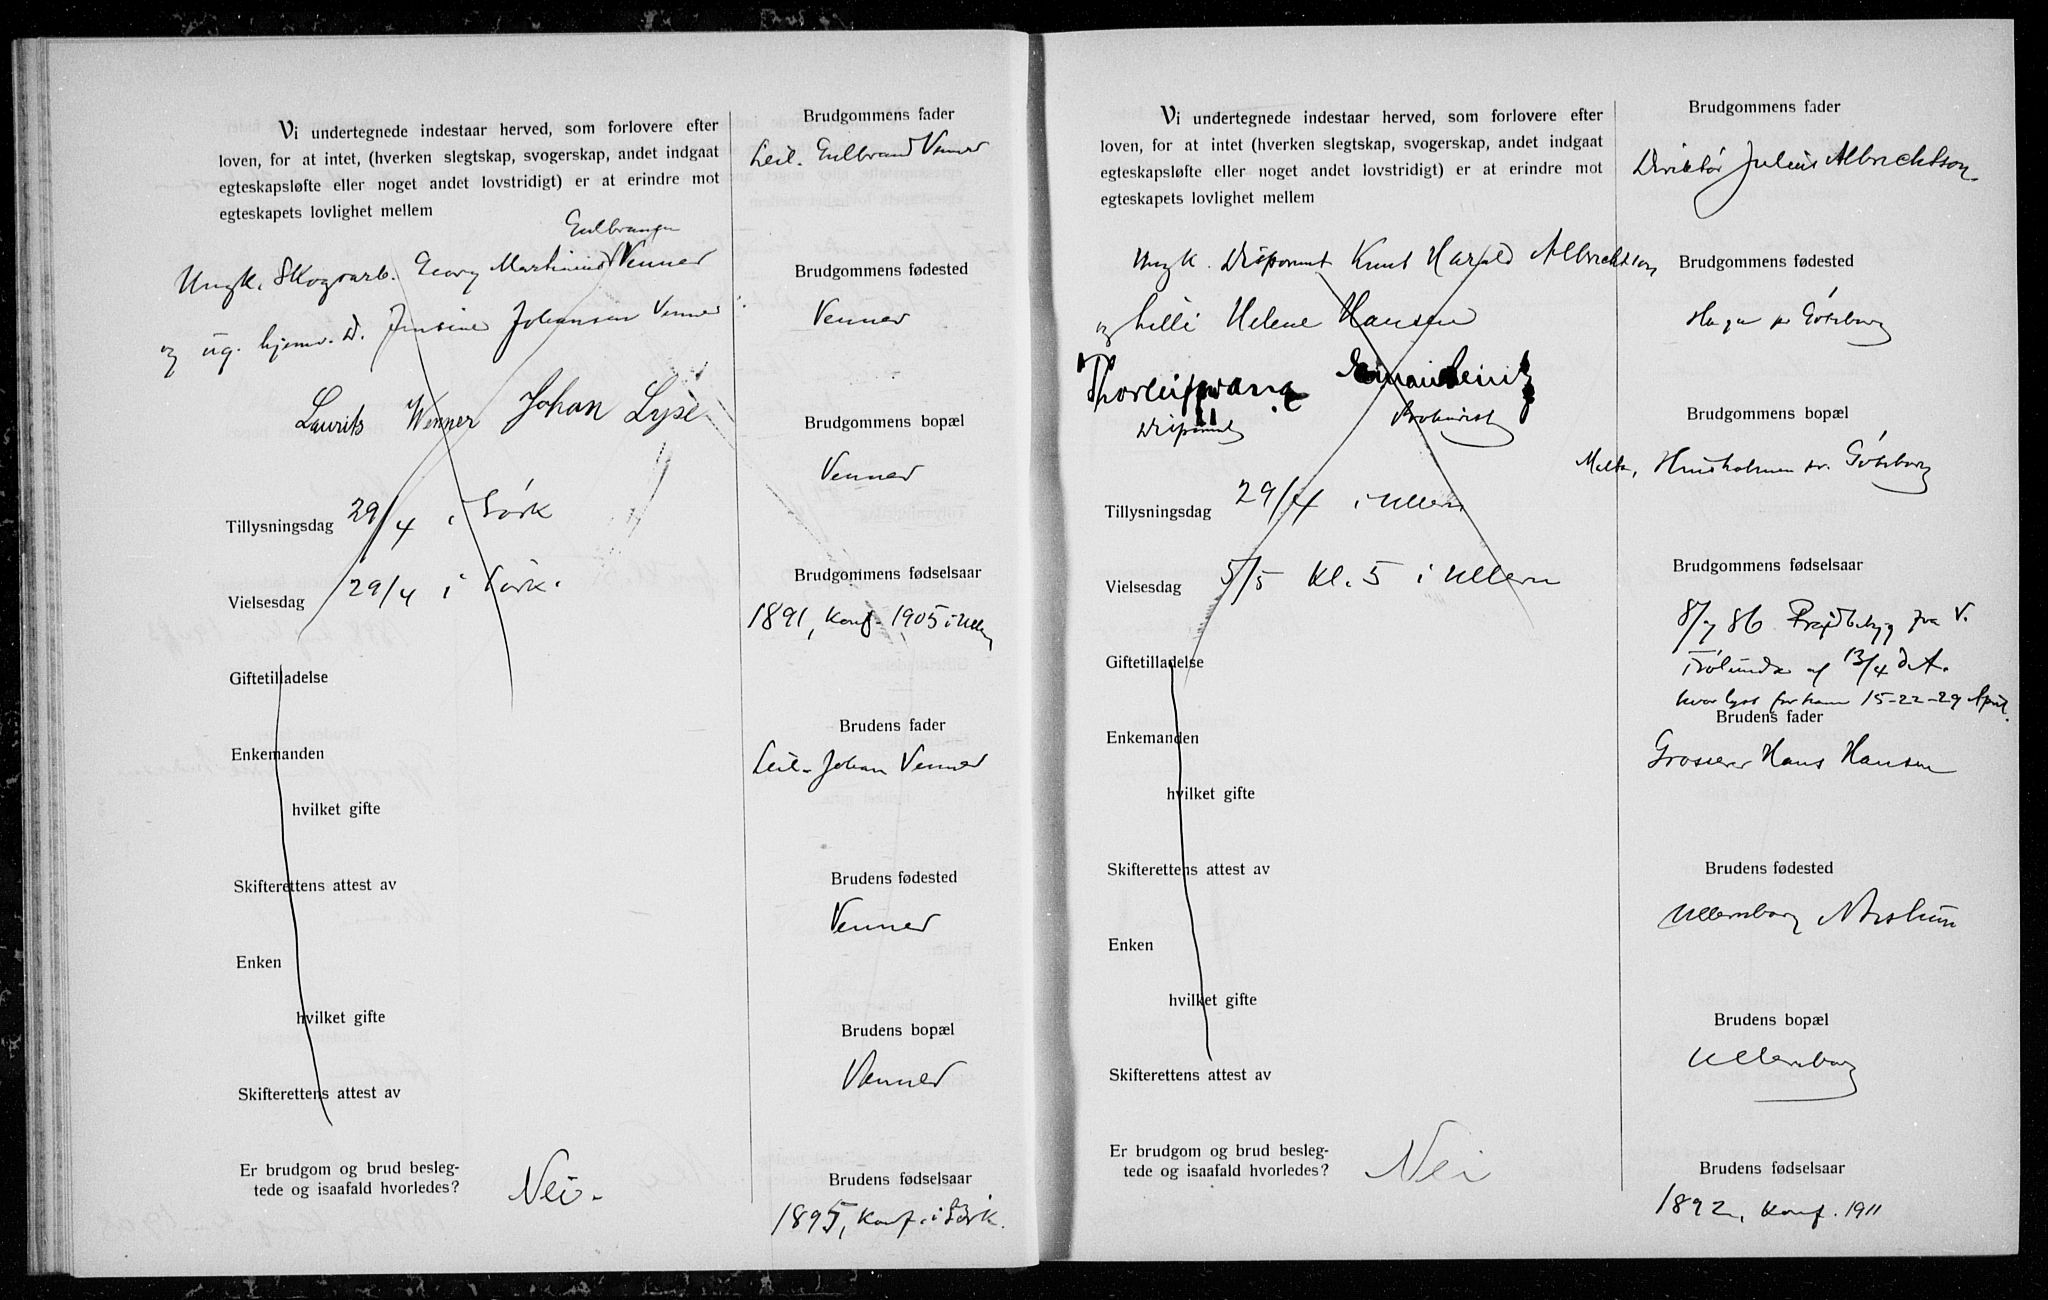 Vi undertegnede indestaar herved, som forlovere efter
loven, for at intet, (hverken slegtskap, svogerskap, andet indgaat
egteskapsløfte eller noget andet lovstridigt) er at erindre mot
egteskapets lovlighet mellem
Ungk. Skogsarb. Georg Martinius Venner
og ug. hjemv. D. Jensine Johansen Venner
Laurits Wenner Johan Lysé
Tillysningsdag 29/4 i Sørk
Vielsesdag 29/4 i Sørk.
Giftetilladelse
Enkemanden
hvilket gifte
Skifterettens attest av
Enken
hvilket gifte
Skifterettens attest av
Er brudgom og brud besleg-
tede og isaafald hvorledes? Nei.
Brudgommens fader
Leil. Gulbrand Venner
Brudgommens fødested
Venner
Brudgommens bopæl
Venner
Brudgommens fødselsaar
1891, konf. 1905 i Ullern
Brudens fader
Leil. Johan Venner
Brudens fødested
Venner
Brudens bopæl
Venner
Brudens fødselsaar
1895, konf. i Sørk.
Vi undertegnede indestaar herved, som forlovere efter
loven, for at intet, (hverken slegtskap, svogerskap, andet indgaat
egteskapsløfte eller noget andet lovstridigt) er at erindre mot
egteskapets lovlighet mellem
Ungk. Disponent Knut Harald Albrechtson
og Lilli Helene Hansen
Disponent Prokurist
Tillysningsdag 29/4 i Ullern
Vielsesdag 5/5 kl. 5 i Ullern
Giftetilladelse
Enkemanden
hvilket gifte
Skifterettens attest av
Enken
hvilket gifte
Skifterettens attest av
Er brudgom og brud besleg-
tede og isaafald hvorledes? Nei
Brudgommens fader
Direktør Julius Albrechtson
Brudgommens fødested
Haga pr Göteborg
Brudgommens bopæl
pr. Göteborg
Brudgommens fødselsaar
8/7 86 fra V.
Frölunda af 13/4 d. A.
hvor lyst for ham 15-22-29 April.
Brudens fader
Grosserer Hans Hansen
Brudens fødested
Ullernborg
Brudens bopæl
Ullernborg
Brudens fødselsaar
1892, konf. 1911